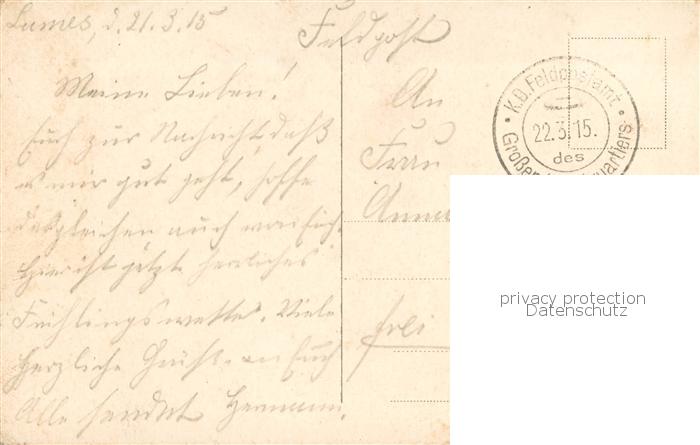 Lumes, d. 21.3.15
Feldpost
Meine Lieben!
Euch zur Nachricht, daß
es mir gut geht, hoffe
desgleichen auch von Euch.
Hier ist jetzt herrliches
Frühlingswetter. Viele
herzliche Grüße an Euch
Alle sendet Hermann.
An
Frau
Anna
frei
K.D. Feldpostamt
22.3.15.
des
Großen quartiers
privacy protection
Datenschutz